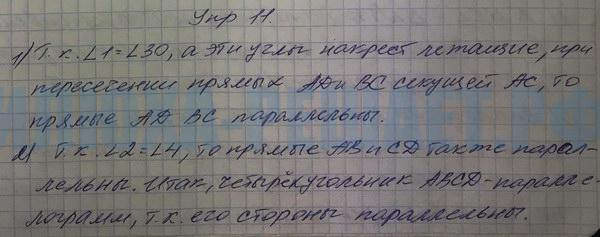 Упр 11.
1) Т.к. ∠1=∠30, а эти углы накрест лежащие, при
пересечении прямых AD и BC секущей AC, то
прямые AD BC параллельны.
2) Т.к. ∠2=∠4, то прямые AB и CD также парал-
лельны. Итак, четырёхугольник ABCD - паралле-
лограмм, т.к. его стороны параллельны.